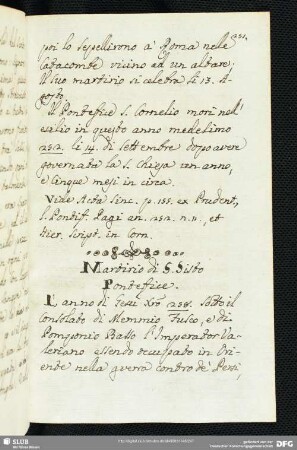 poi lo seppellirono à Roma nelle
Catacombe vicino ad un altare.
Il suo martirio si celebra li 13. A-
gosto.
Il Pontefice S. Cornelio morì nell'
esilio in questo anno medesimo
252. li 14. di Settembre dopo aver
governata la S. Chiesa un anno,
e cinque mesi in circa.
Vide Acta Sinc. p. 155. ex Prudent.
S. Pontif. Pagi an. 252. n. 11. et
Hier. Script. in Corn.
Martirio di S. Sisto
Pontefice.
L'anno di Gesù Xto 258. sotto il
Consolato di Memmio Fusco, e di
Pomponio Basso l'Imperator Va-
leriano essendo occupato in Ori-
ente nella guerra contro de' Persi,
SLUB
Wir führen Wissen.
DFG